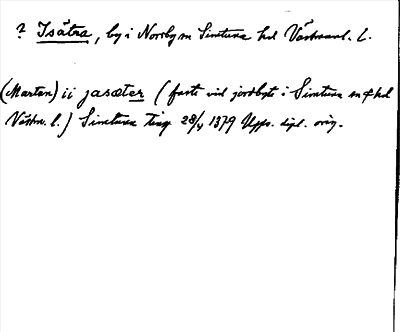 ? Isätra, by i Norrby sn Simtuna hd Västmanl. l.
(Marten) ii jasæter (faste vid jordbyte i Simtuna sn o hd
Västm. l.) Simtuna ting 28/4 1379 Upps. dipl. orig.